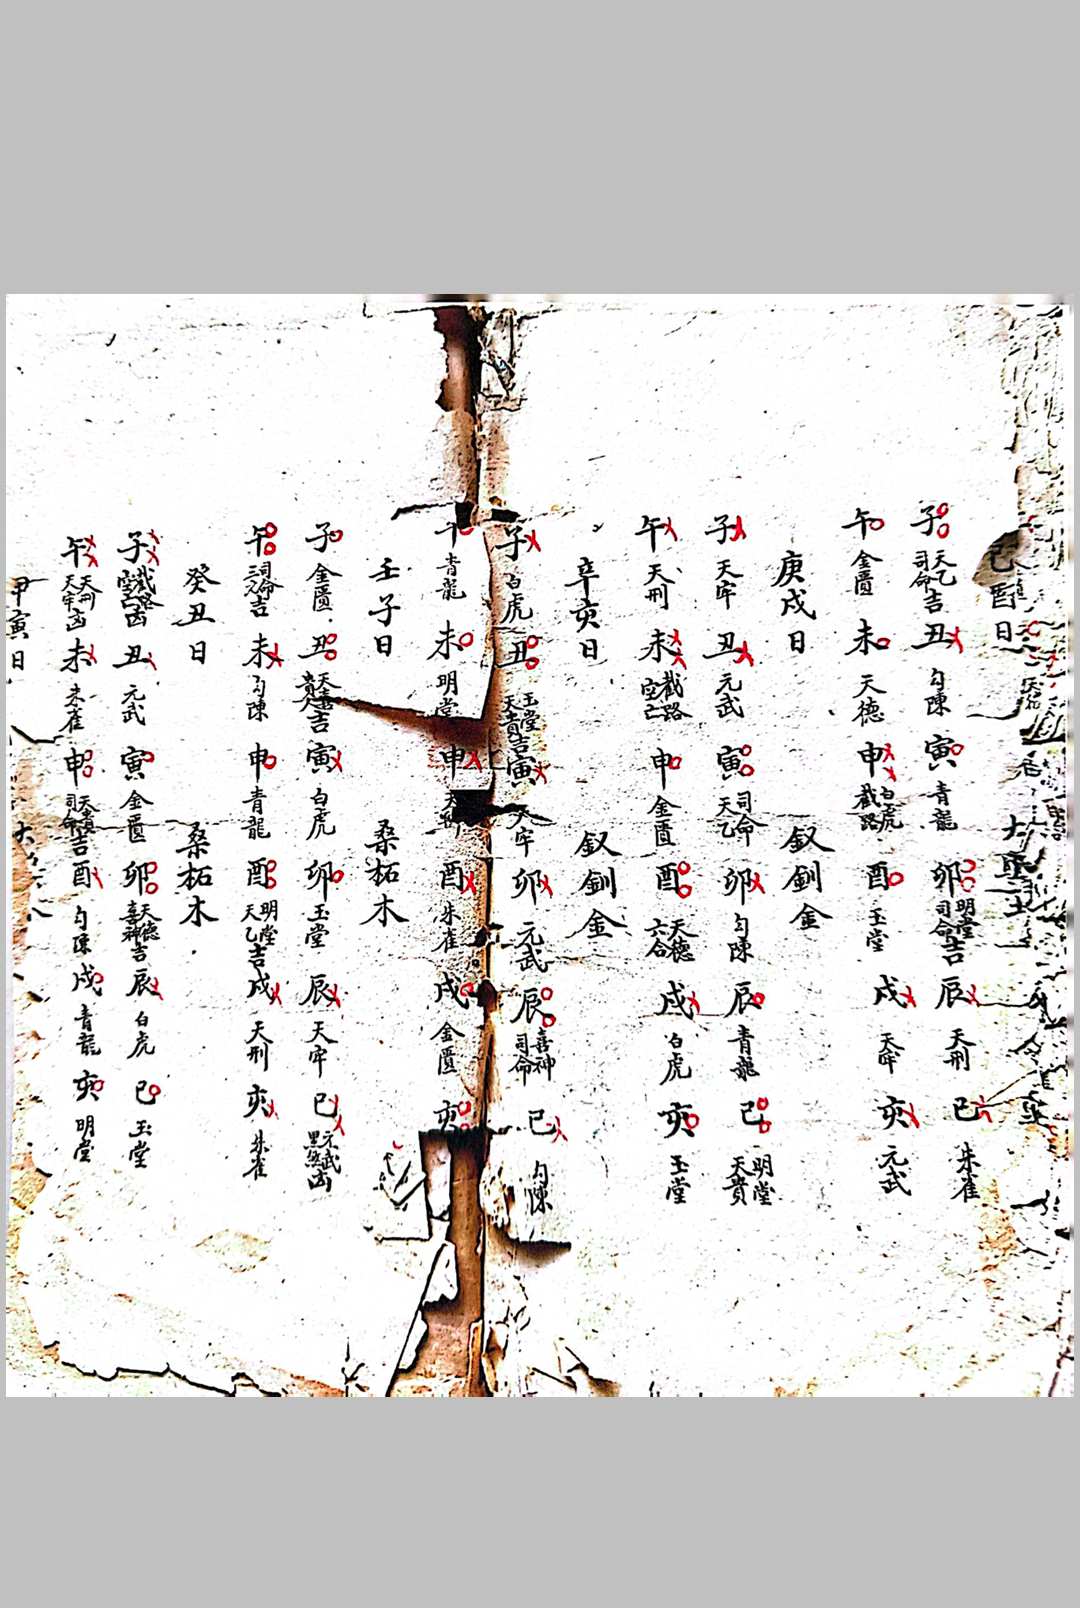 己酉日 大
子 天乙司命吉 丑 勾陳 寅 青龍 卯 明堂司命吉 辰 天刑 巳 朱雀
午 金匱 未 天德 申 白虎截路 酉 玉堂 戌 天牢 亥 元武
庚戌日 釵釧金
子 天牢 丑 元武 寅 司命天乙 卯 勾陳 辰 青龍 巳 明堂天貴
午 天刑 未 截路空亡 申 金匱 酉 天德六合 戌 白虎 亥 玉堂
辛亥日 釵釧金
子 白虎 丑 玉堂天貴吉 寅 天牢 卯 元武 辰 喜神司命 巳 勾陳
午 青龍 未 明堂 申 天刑 酉 朱雀 戌 金匱 亥
壬子日 桑柘木
子 金匱 丑 吉 寅 白虎 卯 玉堂 辰 天牢 巳 元武黑煞凶
午 司命吉 未 勾陳 申 青龍 酉 明堂天乙吉 戌 天刑 亥 朱雀
癸丑日 桑柘木
子 截路空亡凶 丑 元武 寅 金匱 卯 天德喜神吉 辰 白虎 巳 玉堂
午 天刑天牢凶 未 朱雀 申 天貴司命吉 酉 勾陳 戌 青龍 亥 明堂
甲寅日 大